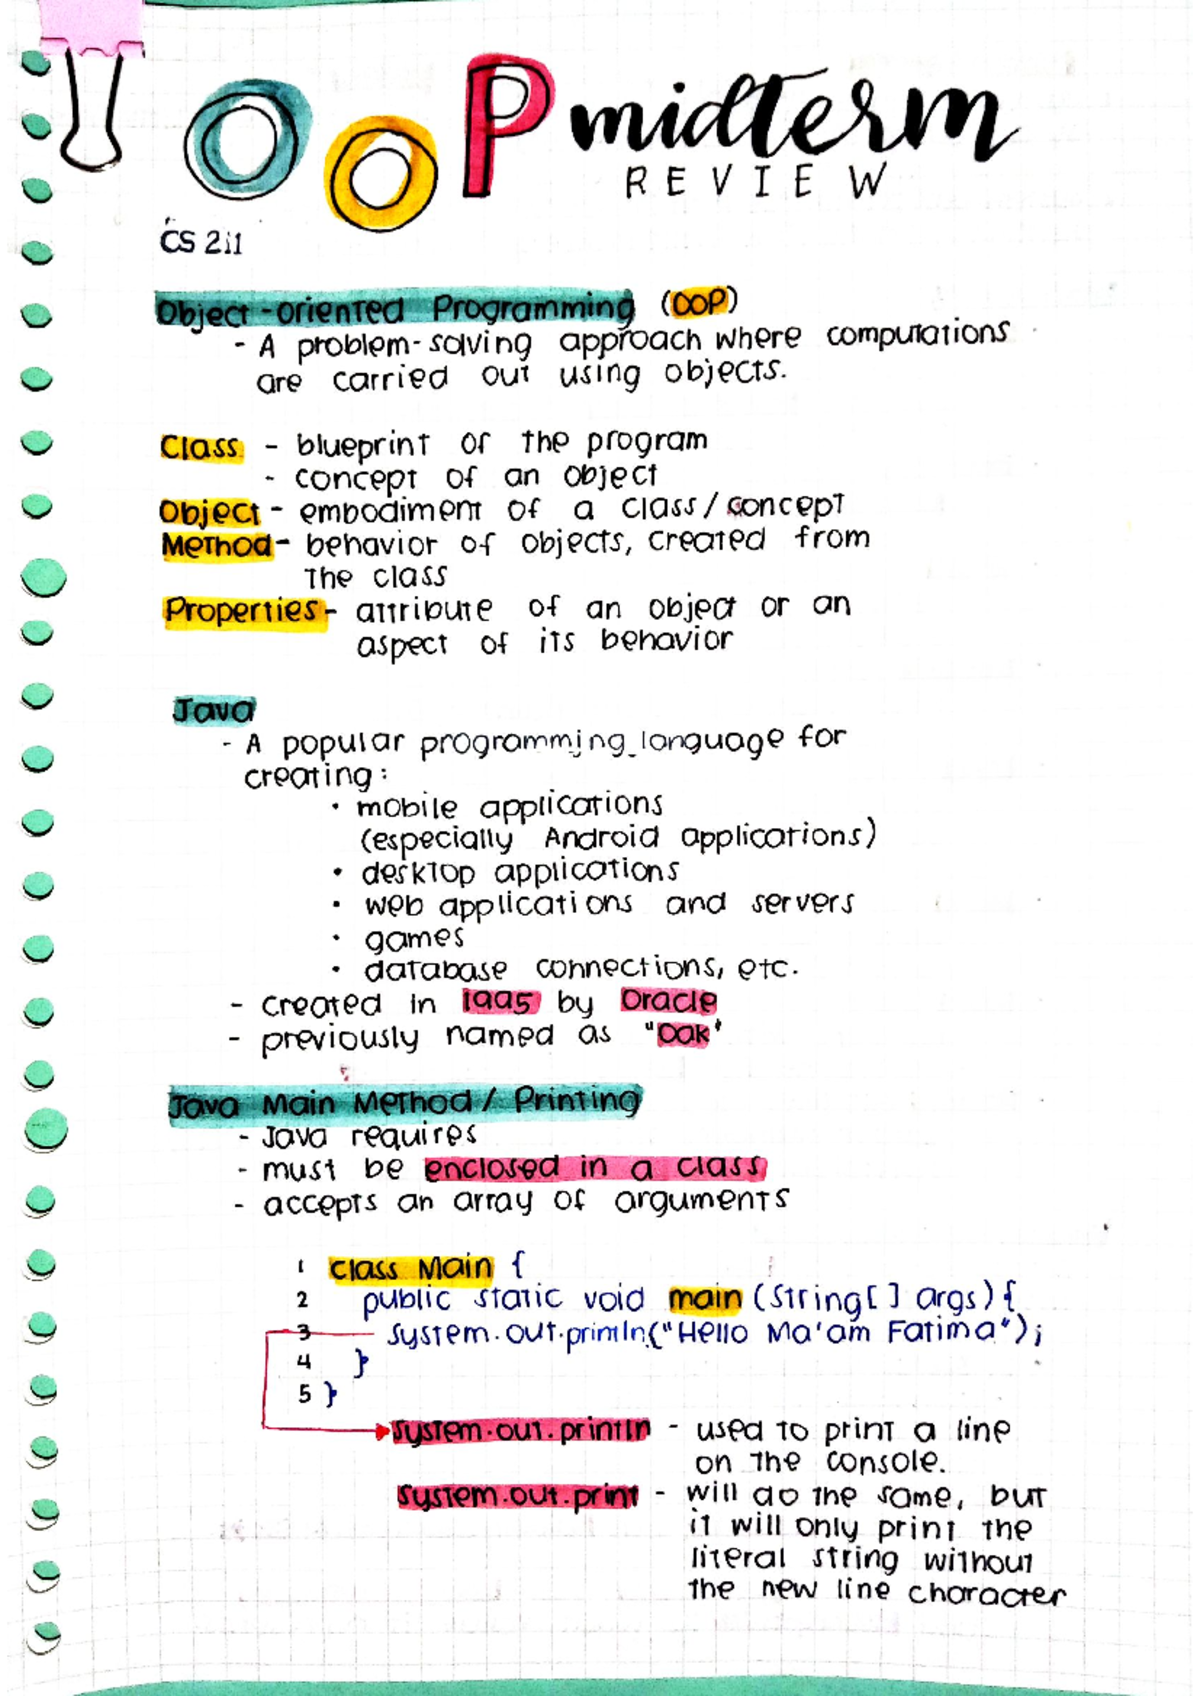 OOP midterm
REVIEW
CS 211
Object-oriented Programming (OOP)
- A problem-solving approach where computations
are carried out using objects.
Class - blueprint of the program
- concept of an object
Object - embodiment of a class/concept
Method - behavior of objects, created from
the class
Properties - attribute of an object or an
aspect of its behavior
Java
- A popular programming language for
creating:
• mobile applications
(especially Android applications)
• desktop applications
• web applications and servers
• games
• database connections, etc.
- created in 1995 by Oracle
- previously named as "Oak"
Java Main Method / Printing
- Java requires
- must be enclosed in a class
- accepts an array of arguments
1 class Main {
2 public static void main (String[] args) {
3 System.out.println("Hello Ma'am Fatima");
4 }
5 }
System.out.println - used to print a line
on the console.
System.out.print - will do the same, but
it will only print the
literal string without
the new line character